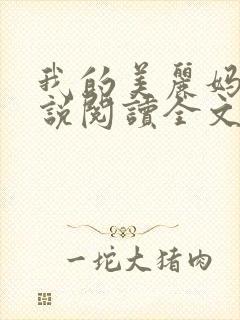 我的美麗妈
說閱讀全文
一坨大猪肉